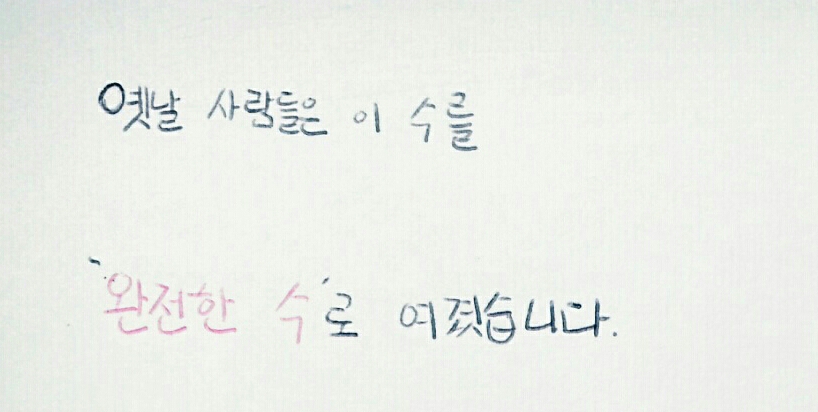 옛날 사람들은 이 수를
'완전한 수'로 여겼습니다.